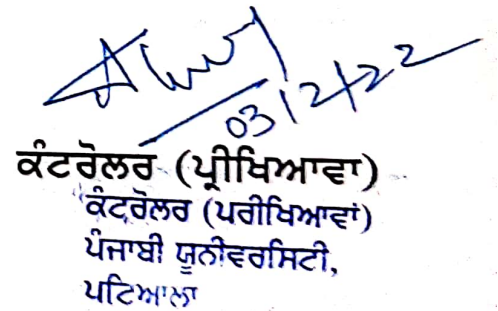 03/12/22
ਕੰਟਰੋਲਰ (ਪ੍ਰੀਖਿਆਵਾ)
ਕੰਟਰੋਲਰ (ਪਰੀਖਿਆਵਾਂ)
ਪੰਜਾਬੀ ਯੂਨੀਵਰਸਿਟੀ,
ਪਟਿਆਲਾ